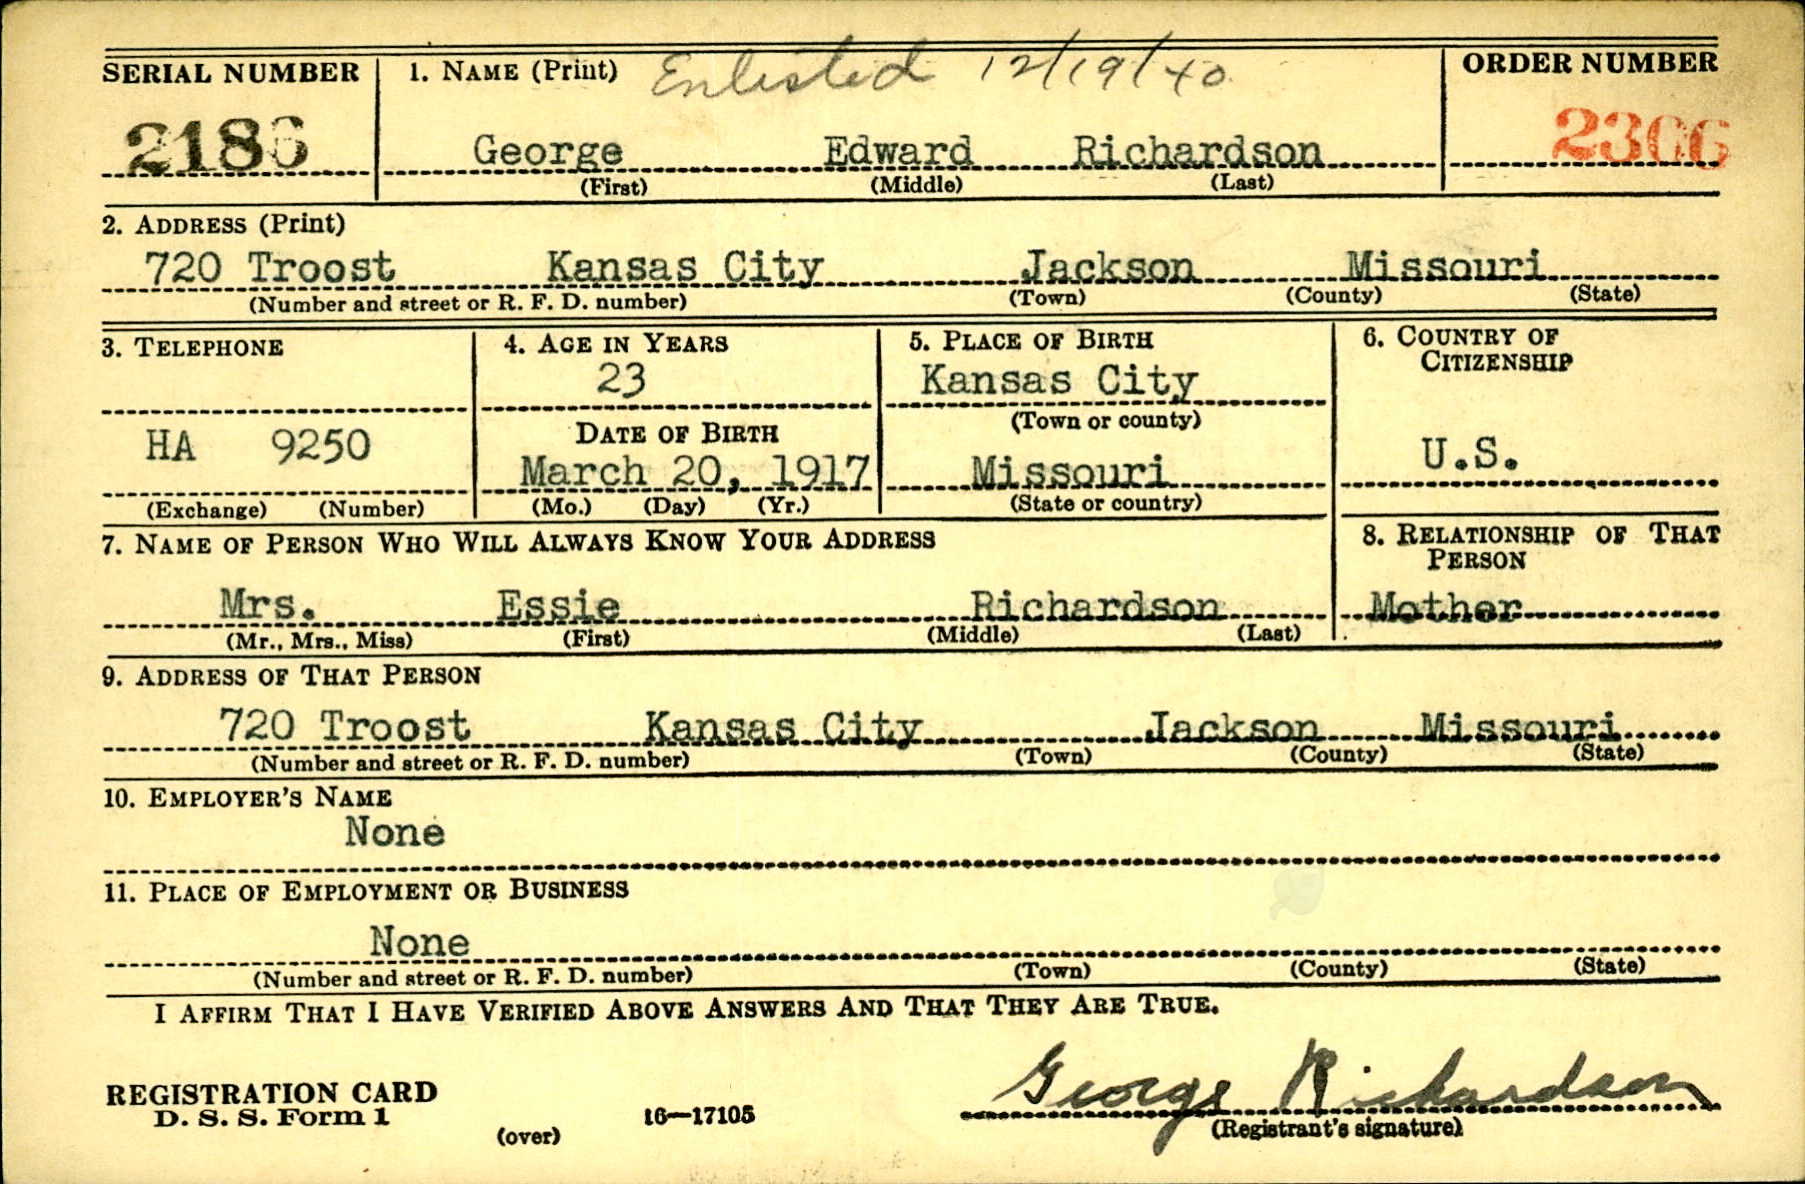 SERIAL NUMBER
1. NAME (Print) Enlisted 12/19/40
ORDER NUMBER
2186
George Edward Richardson
2306
(First) (Middle) (Last)
2. ADDRESS (Print)
720 Troost Kansas City Jackson Missouri
(Number and street or R. F. D. number) (Town) (County) (State)
3. TELEPHONE
HA 9250
(Exchange) (Number)
4. AGE IN YEARS
23
DATE OF BIRTH
March 20, 1917
(Mo.) (Day) (Yr.)
5. PLACE OF BIRTH
Kansas City
(Town or county)
Missouri
(State or country)
6. COUNTRY OF
CITIZENSHIP
U.S.
7. NAME OF PERSON WHO WILL ALWAYS KNOW YOUR ADDRESS
Mrs. Essie Richardson
(Mr., Mrs., Miss) (First) (Middle) (Last)
8. RELATIONSHIP OF THAT
PERSON
Mother
9. ADDRESS OF THAT PERSON
720 Troost Kansas City Jackson Missouri
(Number and street or R. F. D. number) (Town) (County) (State)
10. EMPLOYER'S NAME
None
11. PLACE OF EMPLOYMENT OR BUSINESS
None
(Number and street or R. F. D. number) (Town) (County) (State)
I AFFIRM THAT I HAVE VERIFIED ABOVE ANSWERS AND THAT THEY ARE TRUE.
George Richardson
(Registrant's signature)
REGISTRATION CARD
D. S. S. Form 1
(over)
16—17105